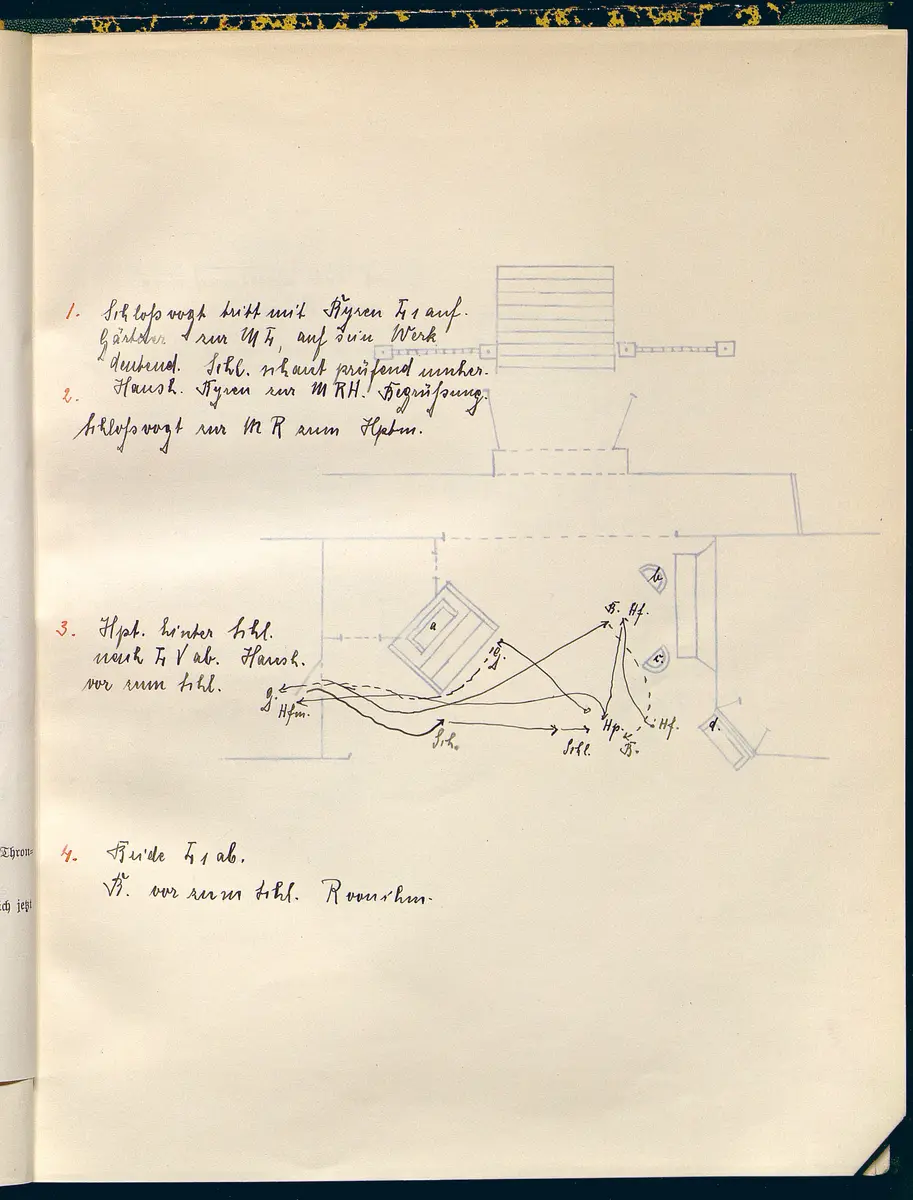 1. Schloßvogt tritt mit Kyren L1 auf.
Gärtner zur ML, auf sein Werk
deutend. Schl. schaut prüfend umher.
2. Haush. Kyren zur MRH. Begrüßung.
Schloßvogt zur MR zum Hptm.
b
a
K. Hf.
3. Hpt. hinter Schl.
nach L V ab. Haush.
vor zum Schl.
g.
c.
g.
Hfm.
Sch.
Schl.
Hp.
K.
Hf.
d.
Thron=
4. Beide L1 ab.
K. vor zum Schl. R von ihm.
ich jetzt